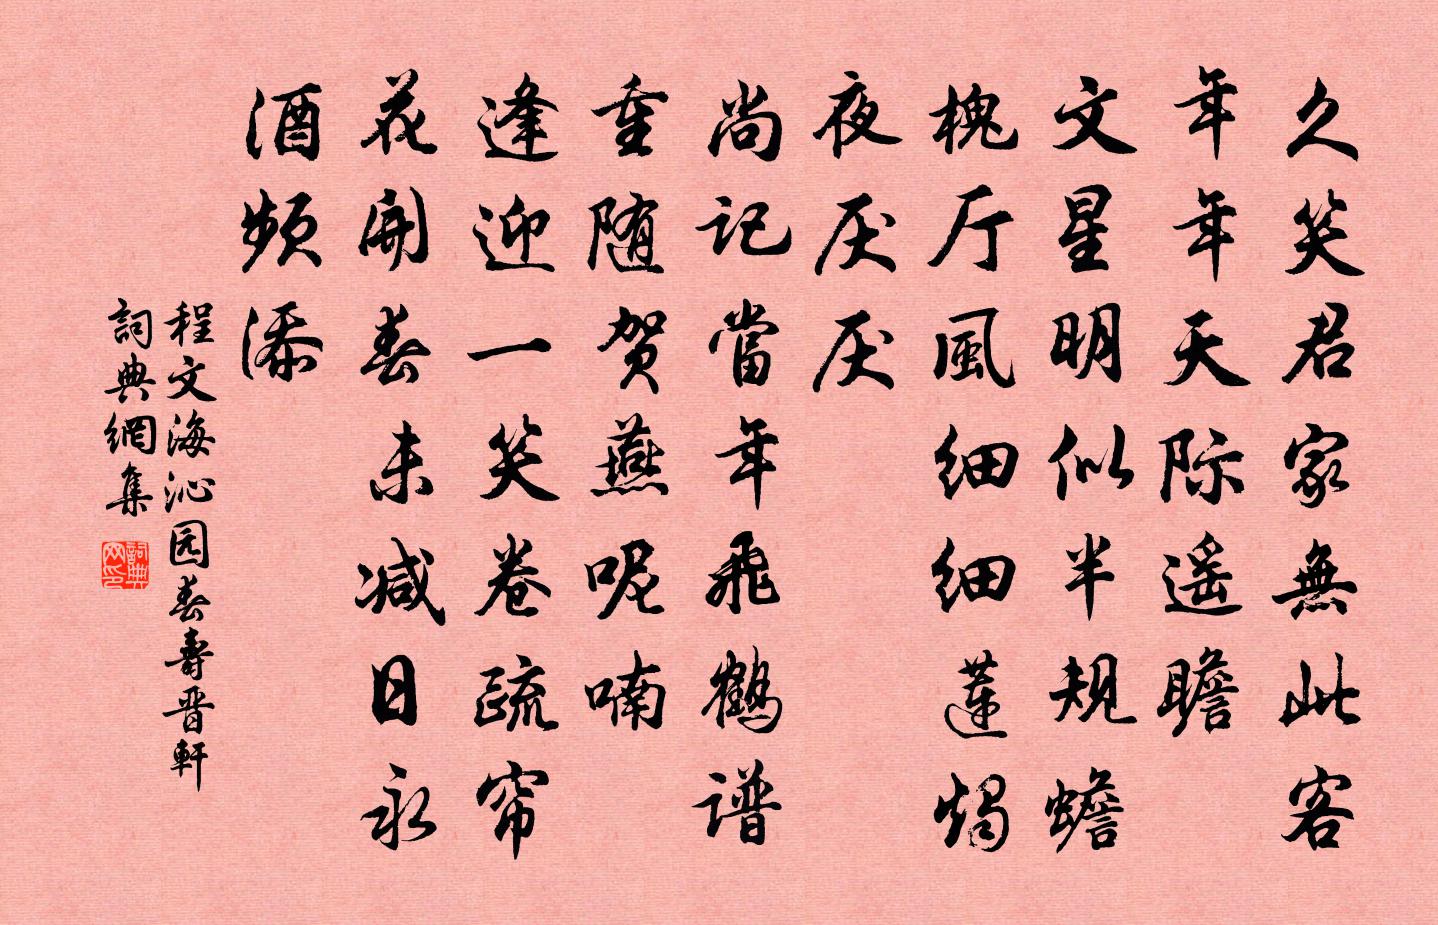 久笑君家無此客
年年天际遥瞻
文星明似半规蟾
槐厅風细细蓮燭
夜厌厌
尚记當年飛鶴谱
重随贺燕呢喃
逢迎一笑卷疏帘
花開春未减日永
酒频添
程文海沁园春壽晋軒
詞典網集
詞典网印